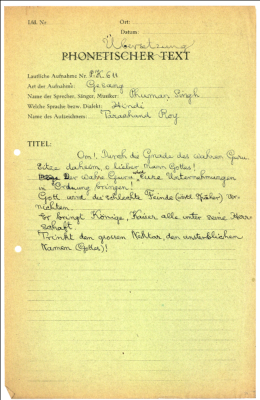 Lfd. Nr.
Ort:
Datum:
Übersetzung
PHONETISCHER TEXT
Lautliche Aufnahme Nr. P.K. 611
Art der Aufnahme: Gesang
Name der Sprecher, Sänger, Musiker: Thuman Singh
Welche Sprache bezw. Dialekt: Hindi
Name des Aufzeichners: Tarachand Roy
TITEL:
Om! Durch die Gnade des wahren Guru.
Sitze daheim, o lieber Mann Gottes!
Der wahre Guru wird Eure Unternehmungen
in Ordnung bringen!
Gott wird die schlechte Feinde (und Späher) ver-
nichten.
Er bringt Könige, Kaiser alle unter seine Herr-
schaft.
Trinkt den grossen Nektar, den unsterblichen
Namen (Gottes)!